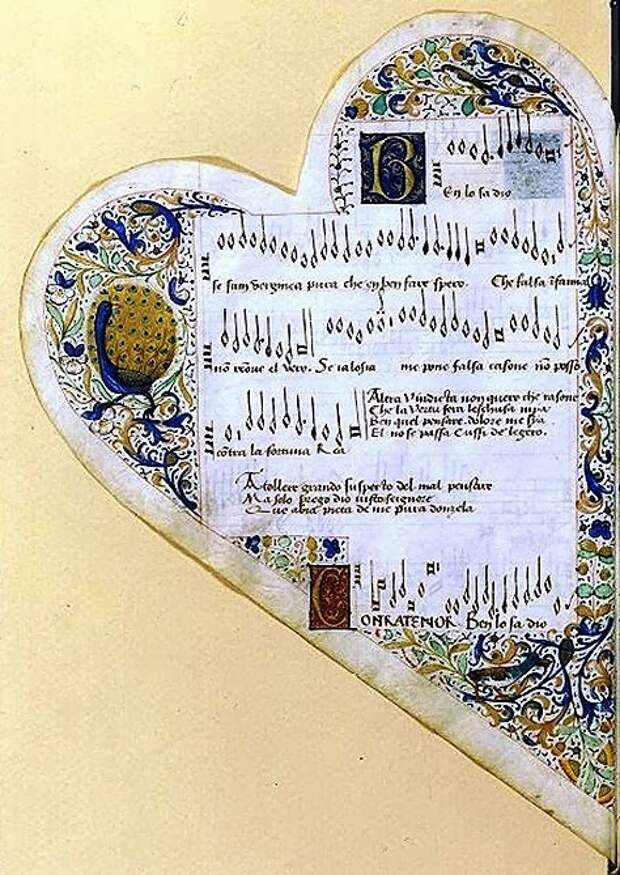 BEn lo sa dio
se sum verginea pura che en pensare spero. Che falsa infamia
non reque el vero. Se ialosia me pone falsa casone nō posso
cōtra la fortuna Rea
Altra Vindicta non quero che rasone
Che la Vertu sera
Ben quel pensare. dolore me
El no se passa Cussi de legero.
A tollere grando suspecto del mal pensare
Ma solo prego dio iusto seignore
Que abia pieta de me pura donzela
CONRATENOR Ben lo sa dio